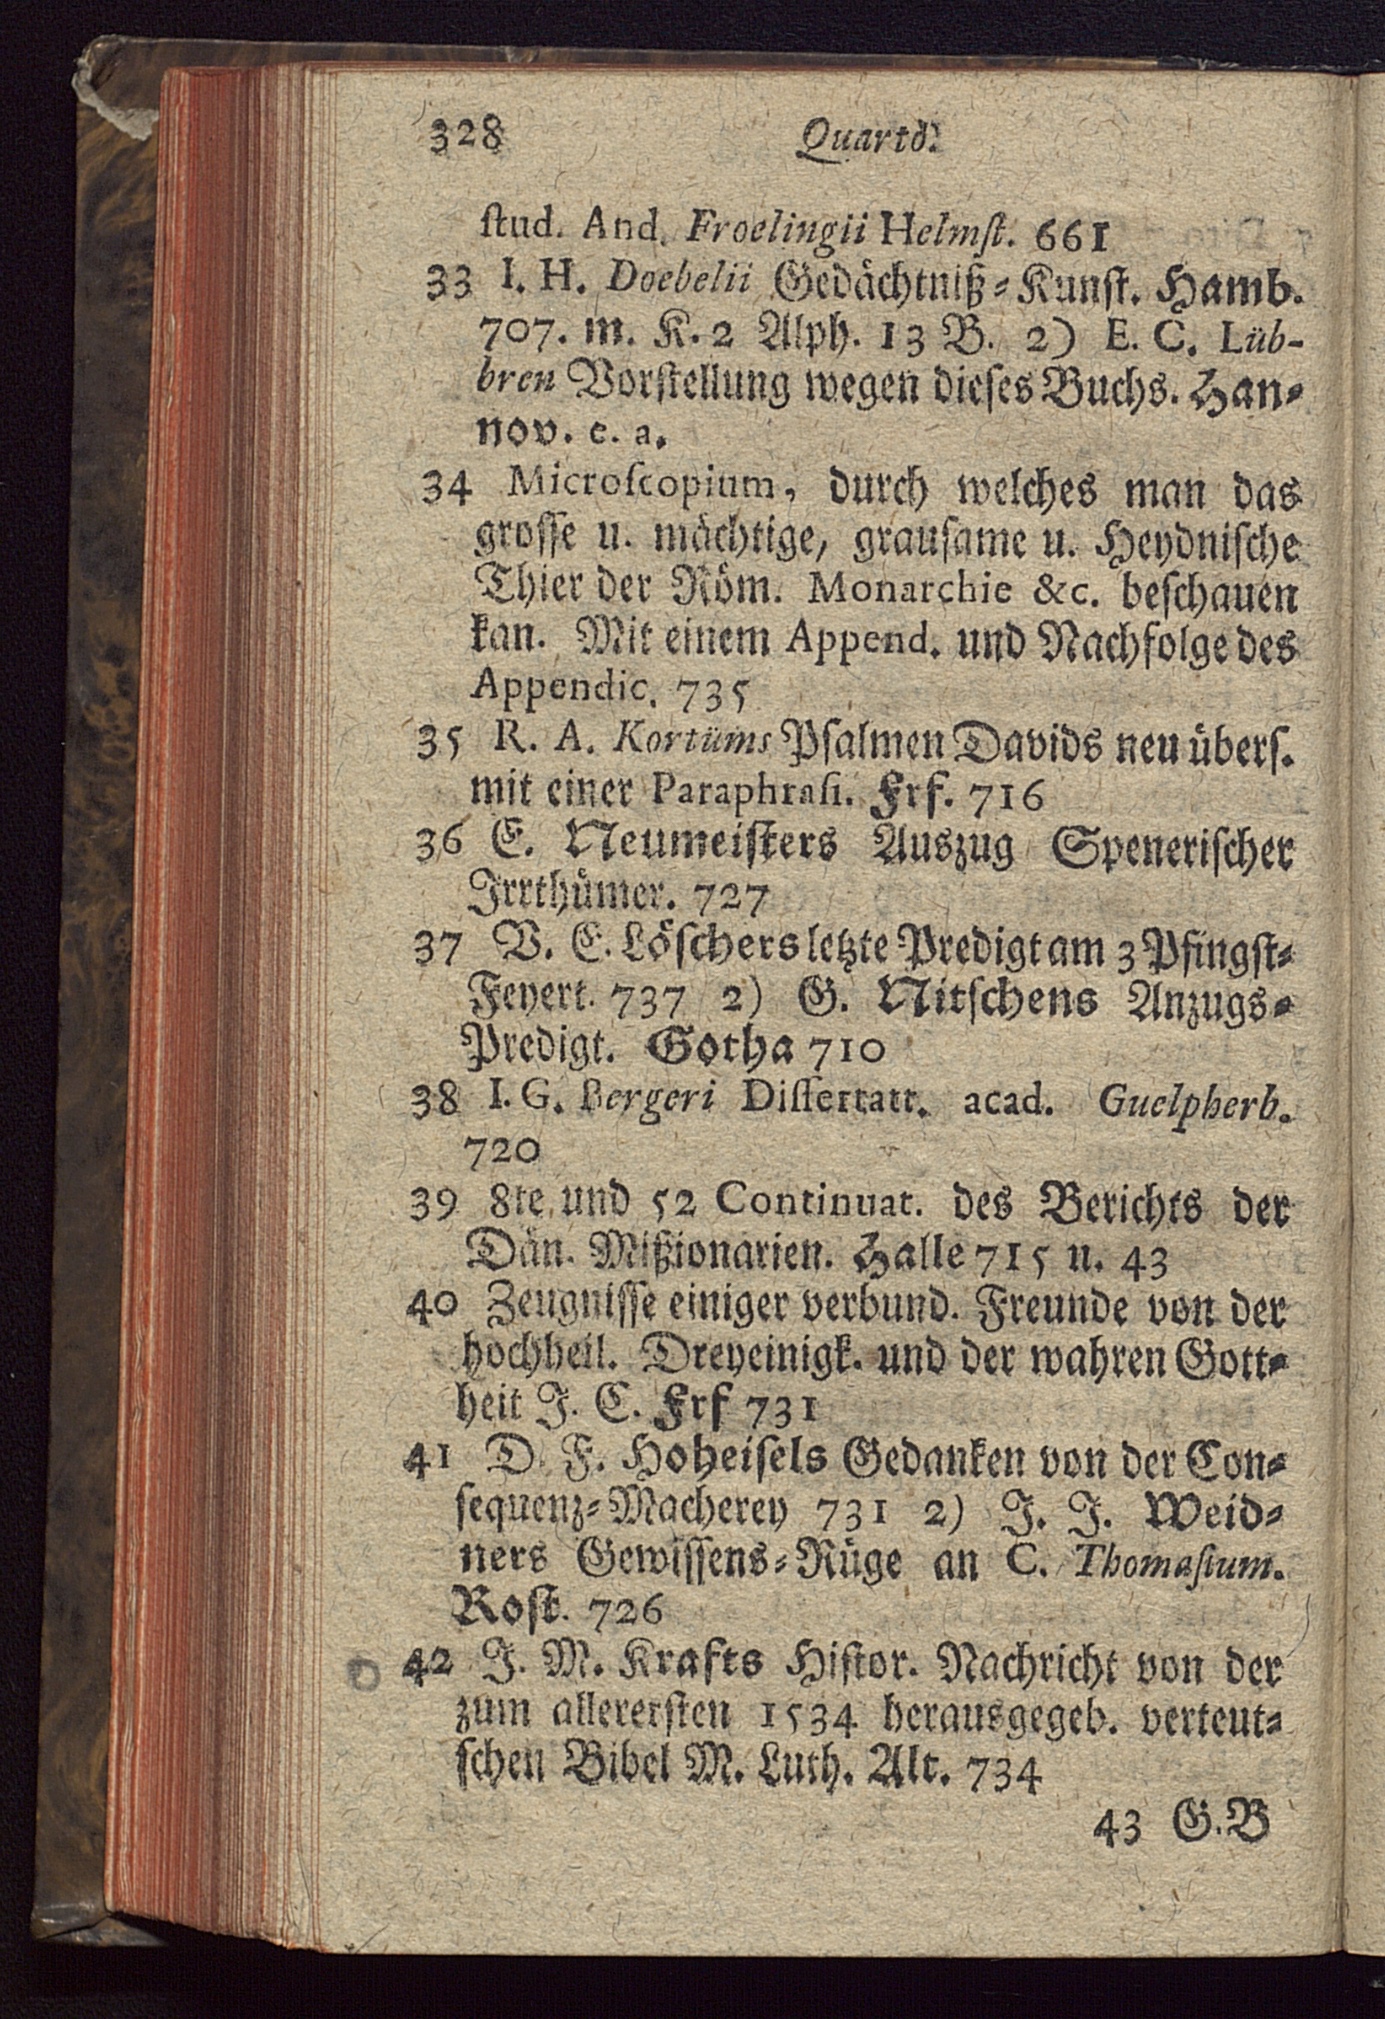 328 Quartò.
ſtud. And. Froelingii Helmſt. 661
33 I. H. Doebelii Gedächtniß-Kunſt. Hamb.
707. m. K. 2 Alph. 13 B. 2) E. C. Lüb-
bren Vorſtellung wegen dieſes Buchs. Han-
nov. e. a.
34 Microſcopium, durch welches man das
groſſe u. mächtige, grauſame u. Heydniſche
Thier der Röm. Monarchie &c. beſchauen
kan. Mit einem Append. und Nachfolge des
Appendic. 735
35 R. A. Kortüms Pſalmen Davids neu überſ.
mit einer Paraphraſi. Frf. 716
36 E. Neumeiſters Auszug Speneriſcher
Irrthümer. 727
37 V. E. Löſchers letzte Predigt am 3 Pfingſt-
Feyert. 737 2) G. Nitſchens Anzugs-
Predigt. Gotha 710
38 I. G. Bergeri Diſſertatt. acad. Guelpherb.
720
39 8te und 52 Continuat. des Berichts der
Dän. Mißionarien. Halle 715 u. 43
40 Zeugniſſe einiger verbund. Freunde von der
hochheil. Dreyeinigk. und der wahren Gott-
heit J. C. Frf 731
41 D. F. Hoheiſels Gedanken von der Con-
ſequenz-Macherey 731 2) J. J. Weid-
ners Gewiſſens-Rüge an C. Thomaſium.
Roſt. 726
42 J. M. Krafts Hiſtor. Nachricht von der
zum allererſten 1534 herausgegeb. verteut-
ſchen Bibel M. Luth. Alt. 734
43 G. B